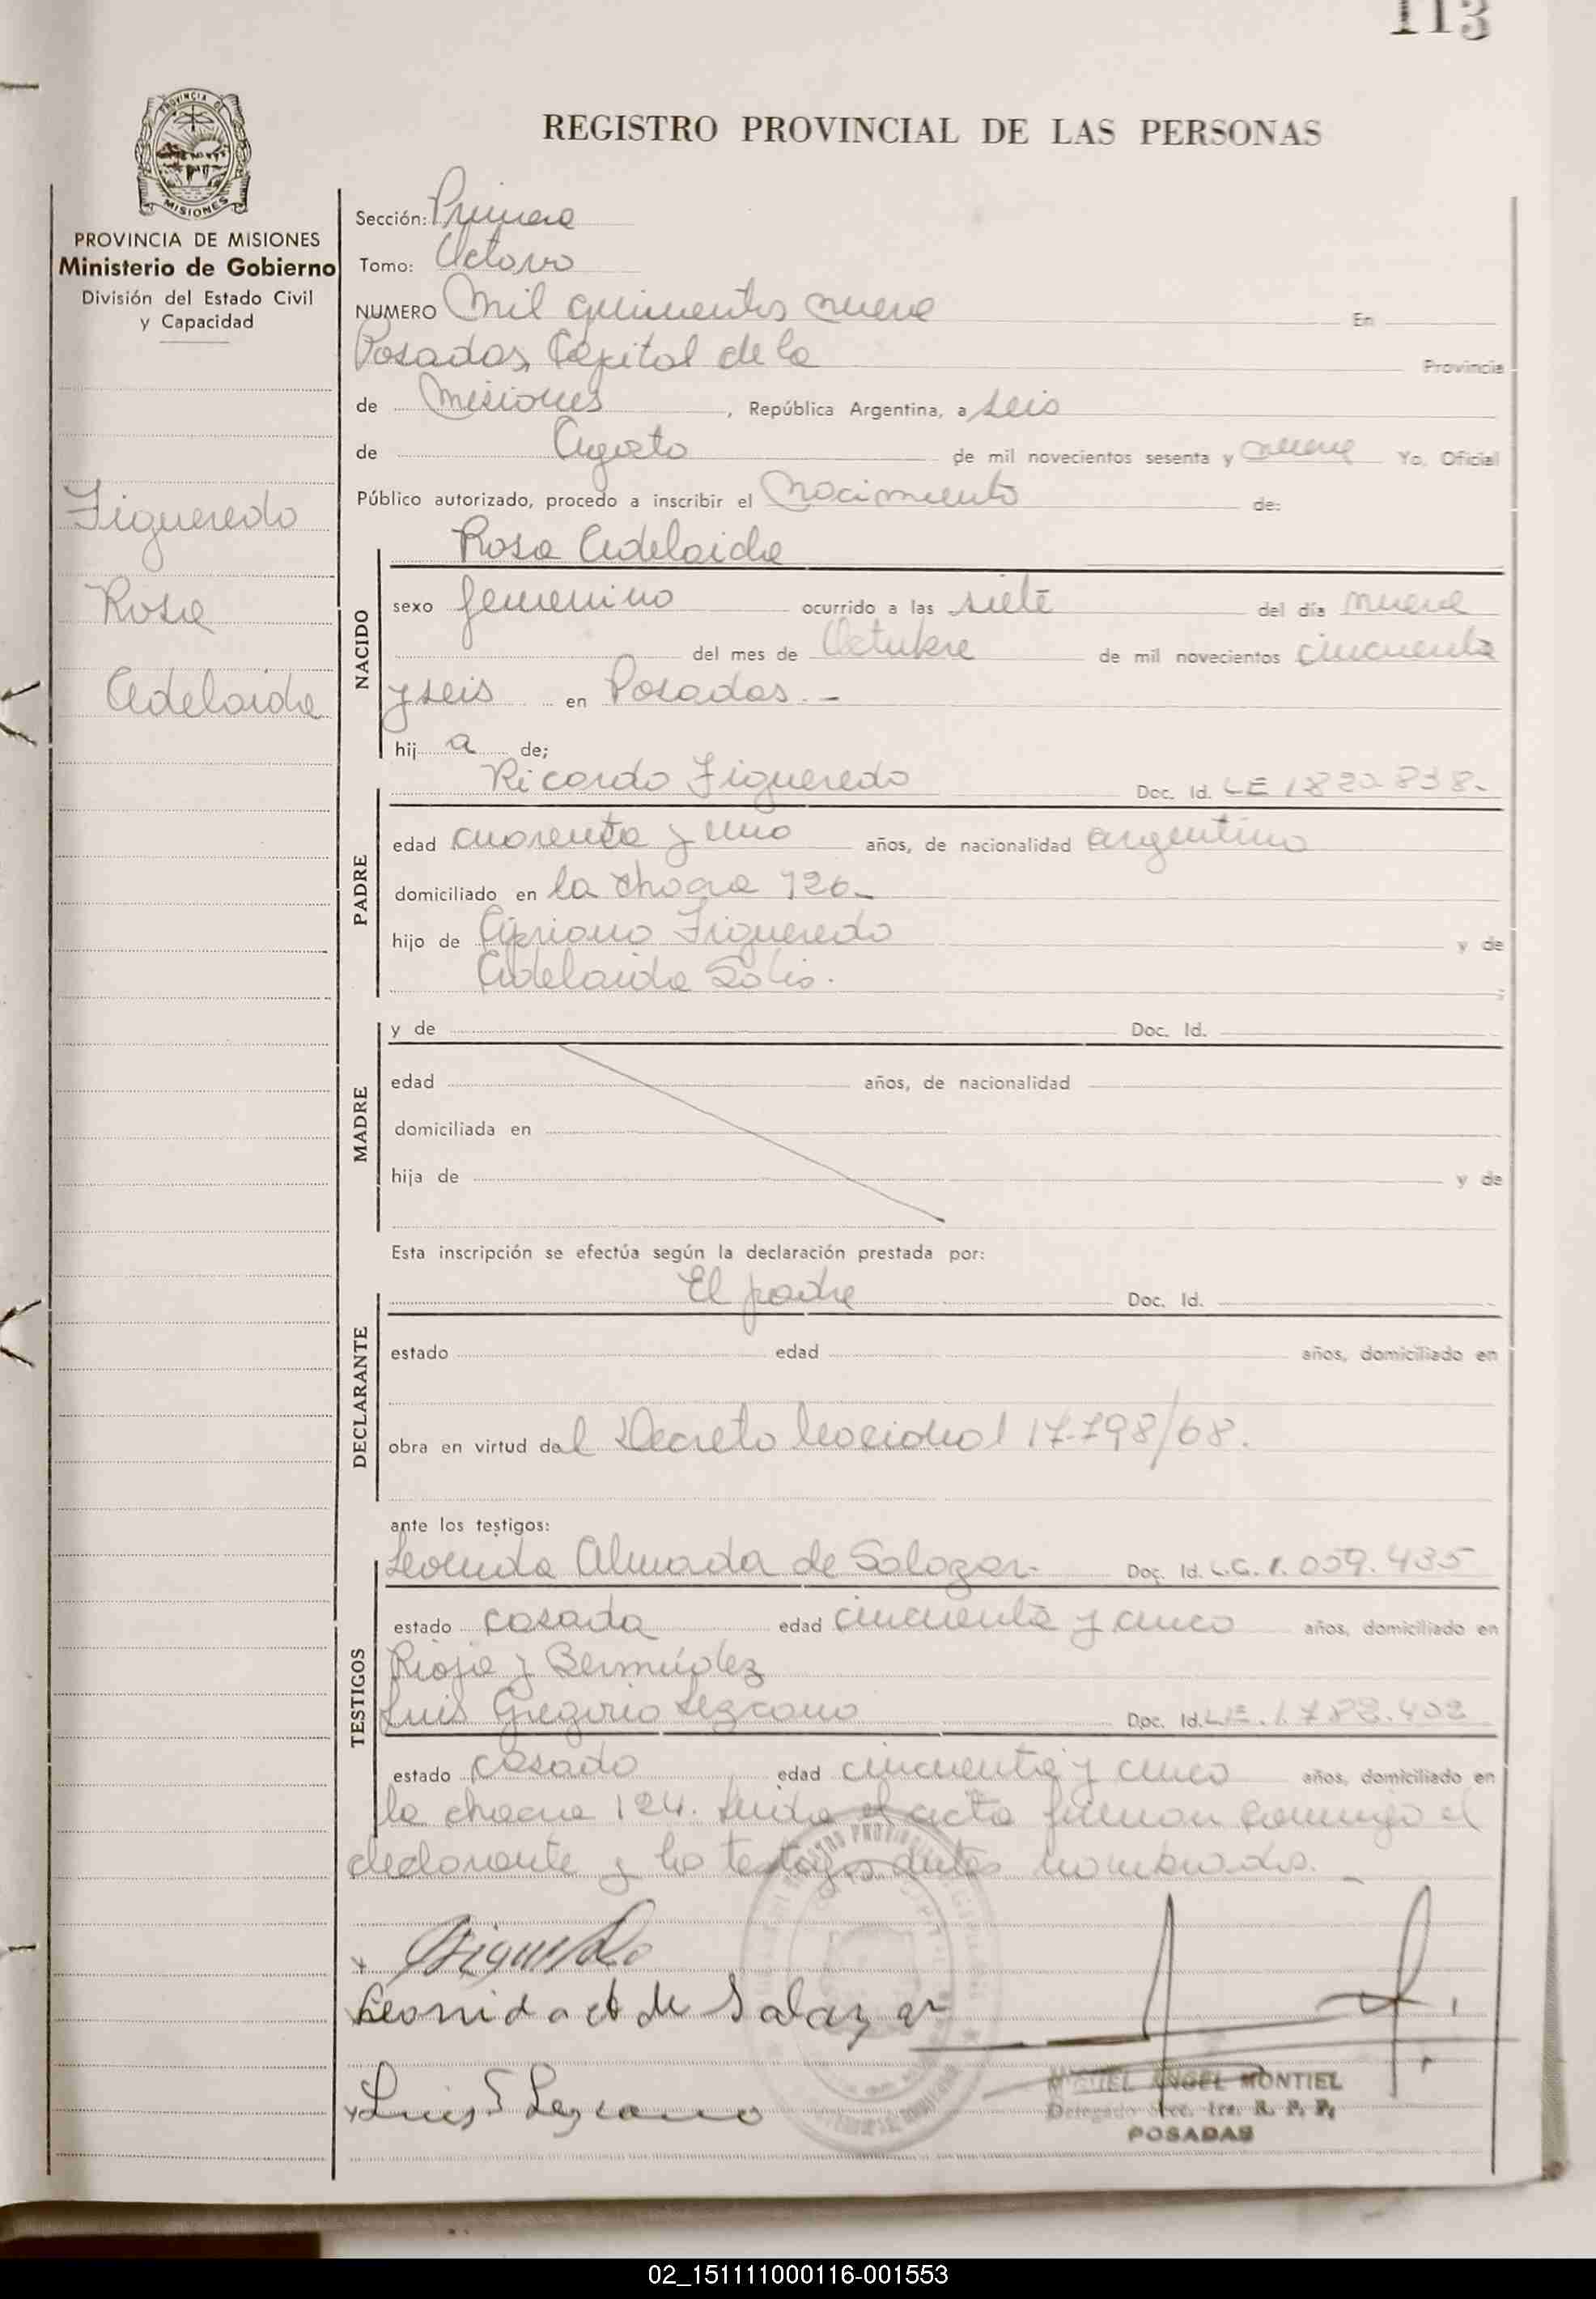 113
PROVINCIA DE
MISIONES
REGISTRO PROVINCIAL DE LAS PERSONAS
PROVINCIA DE MISIONES
Ministerio de Gobierno
División del Estado Civil
y Capacidad
Figueredo
Rosa
Adelaida
Sección: Primera
Tomo: Octavo
NUMERO Mil quinientos nueve En
Posadas, Capital de la Provincia
de Misiones, República Argentina, a seis
de Agosto de mil novecientos sesenta y nueve Yo, Oficial
Público autorizado, procedo a inscribir el Nacimiento de:
NACIDO
Rosa Adelaida
sexo femenino ocurrido a las siete del día nueve
del mes de Octubre de mil novecientos cincuenta
y seis en Posadas. -
hij a de;
PADRE
Ricardo Figueredo Doc. Id. LE 1820.838.-
edad cuarenta y uno años, de nacionalidad argentino
domiciliado en la chacra 126.-
hijo de Cipriano Figueredo y de
Adelaida Solis.
MADRE
y de Doc. Id.
edad años, de nacionalidad
domiciliada en
hija de y de
Esta inscripción se efectúa según la declaración prestada por:
DECLARANTE
El padre Doc. Id.
estado edad años, domiciliado en
obra en virtud del Decreto Nacional 17.798/68.
ante los testigos:
TESTIGOS
Leonida Almada de Salazar.- Doc. Id. L.C. 1.059.435
estado casada edad cincuenta y cinco años, domiciliado en
Rioja y Bermúdez
Luis Gregorio Lezcano Doc. Id. LE. 1.782.402
estado casado edad cincuenta y cinco años, domiciliado en
la chacra 124. Leida el acta firman conmigo el
declarante y los testigos antes nombrados.
x Figueredo
Leonida A de Salazar
x Luis G Lezcano
MIGUEL ANGEL MONTIEL
Delegado Secc. 1ra. R. P. P.
POSADAS
02_151111000116-001553